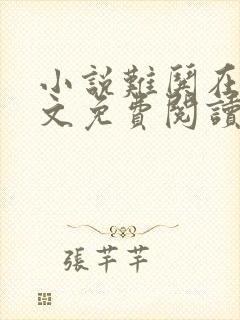 小說難鬬在
文免費閱讀
張芊芊